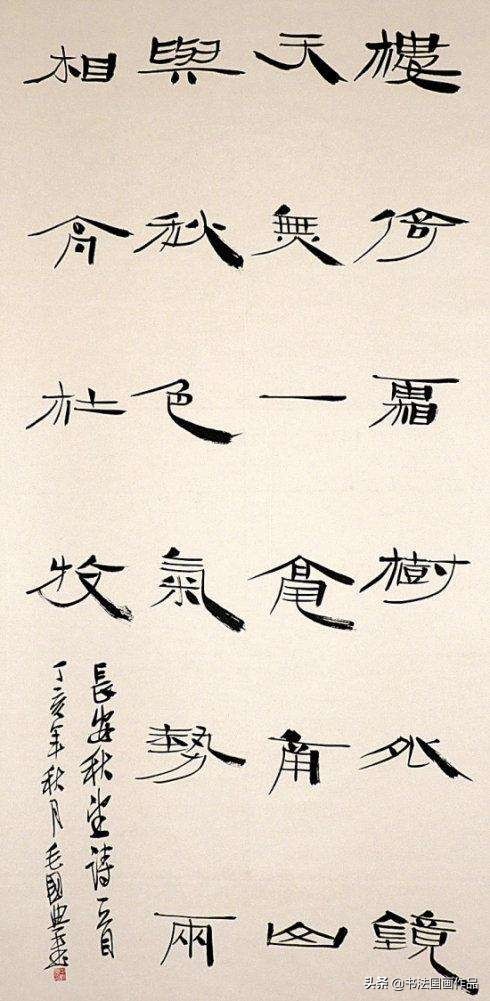 樓倚霜樹外鏡
天無一毫南山
與秋色氣勢兩
相高杜牧
長安秋望詩一首
丁亥年秋月毛國典書
头条 @书法国画作品